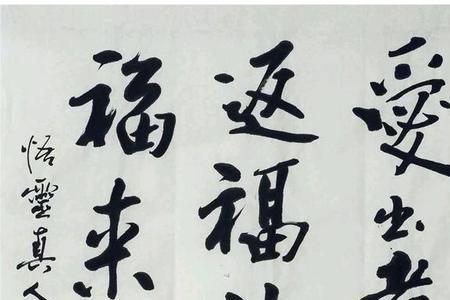 愛出者
返福
福来
悟靈真人